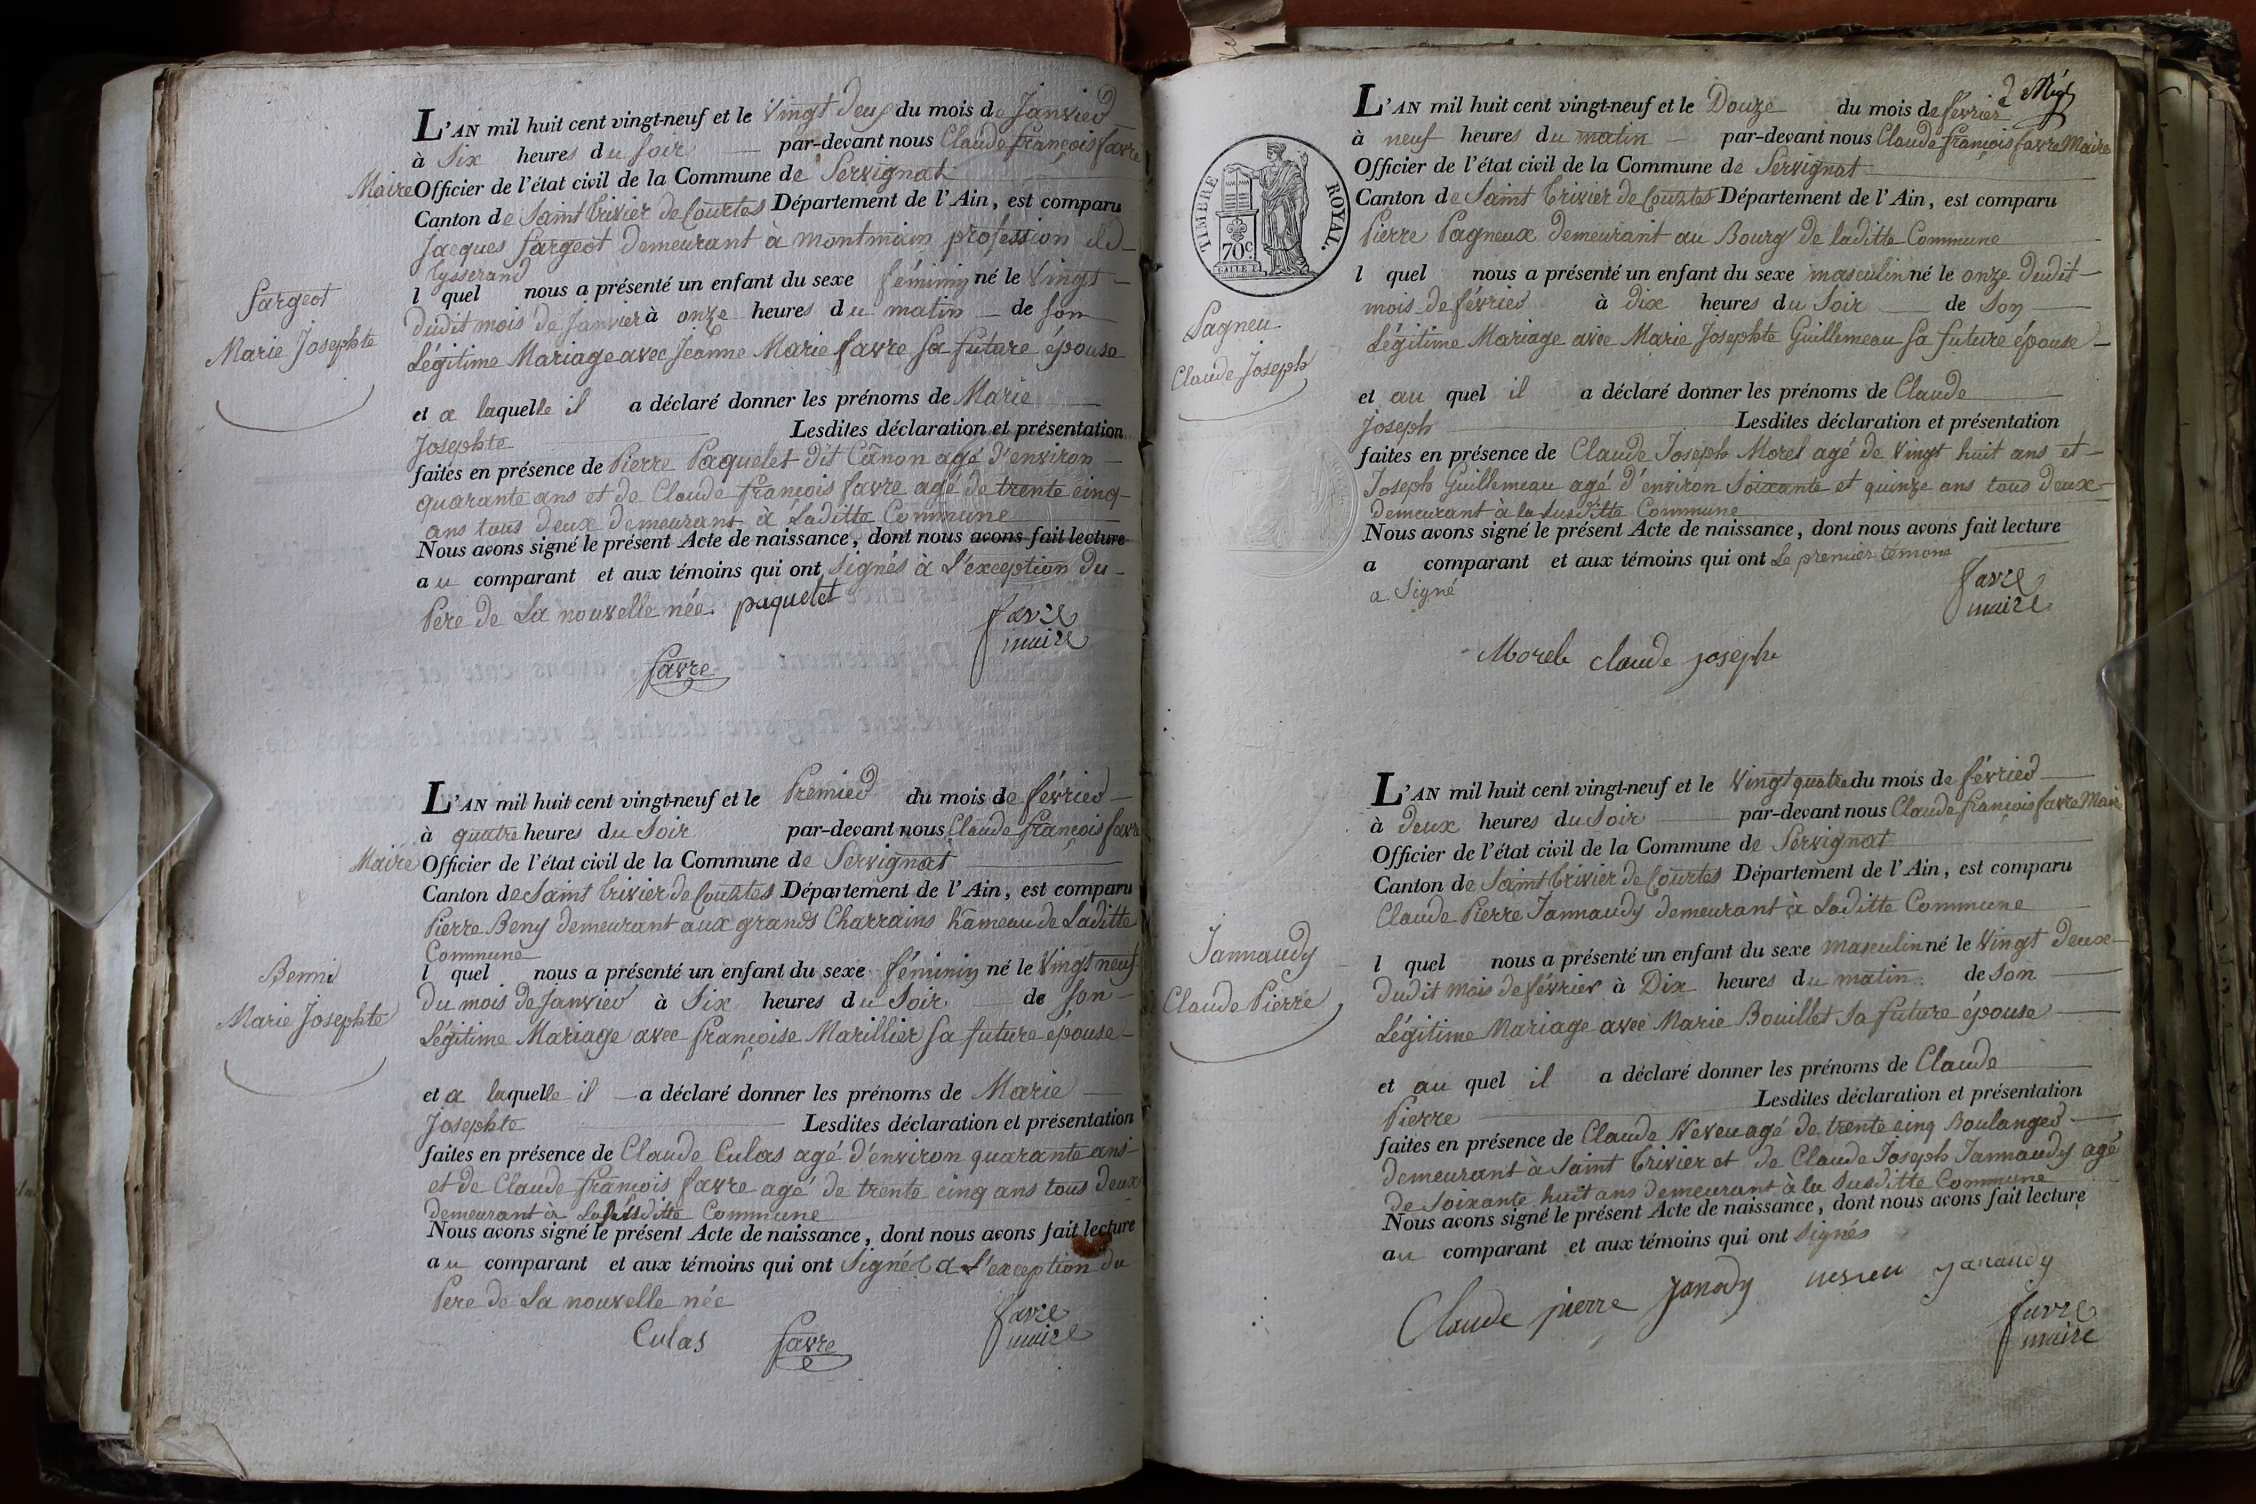 L'AN mil huit cent vingt-neuf et le Vingt deux du mois de Janvier
à Six heures du Soir par-devant nous Claude françois favre
Maire Officier de l'état civil de la Commune de Servignat
Canton de Saint Trivier de Courtes Département de l'Ain, est comparu
Jacques fargeot demeurant à montmain profession de
tysserand
l quel nous a présenté un enfant du sexe féminin né le Vingt
dudit mois de Janvier à onze heures du matin de son
Légitime Mariage avec Jeanne Marie favre sa future épouse
fargeot
Marie Josephte
et a laquelle il a déclaré donner les prénoms de Marie
Josephte Lesdites déclaration et présentation
faites en présence de Pierre Paquelet dit Cânon agé d'environ
quarante ans et de Claude françois favre agé de trente cinq
ans tous deux demeurant à Laditte Commune
Nous avons signé le présent Acte de naissance, dont nous avons fait lecture
au comparant et aux témoins qui ont Signés à L'exception du
Pere de La nouvelle née paquelet
favre
maire
favre
L'AN mil huit cent vingt-neuf et le Premier du mois de février
à quatre heures du Soir par-devant nous Claude françois favre
Maire Officier de l'état civil de la Commune de Servignat
Canton de Saint Trivier de Courtes Département de l'Ain, est comparu
Pierre Beny demeurant aux grands Charrains hameau de Laditte
Commune
l quel nous a présenté un enfant du sexe féminin né le Vingt neuf
du mois de Janvier à Six heures du Soir de son
Légitime Mariage avec françoise Marillier sa future épouse
Benni
Marie Josephte
et a laquelle il a déclaré donner les prénoms de Marie
Josephte Lesdites déclaration et présentation
faites en présence de Claude Culas agé d'environ quarante ans
et de Claude françois favre agé de trente cinq ans tous deux
demeurant à Commune
Nous avons signé le présent Acte de naissance, dont nous avons fait lecture
au comparant et aux témoins qui ont Signés a L'exception du
Pere de La nouvelle née
favre
maire
Culas favre
2
L'AN mil huit cent vingt-neuf et le Douze du mois de février
à neuf heures du matin par-devant nous Claude françois favre Maire
Officier de l'état civil de la Commune de Servignat
Canton de Saint Trivier de Courtes Département de l'Ain, est comparu
Pierre Pagneux demeurant au Bourg de laditte Commune
l quel nous a présenté un enfant du sexe masculin né le onze dudit
mois de février à dix heures du Soir de Son
Légitime Mariage avec Marie Josephte Guillemeau sa future épouse
TIMBRE ROYAL.
70c.
Pagneu
Claude Joseph
et au quel il a déclaré donner les prénoms de Claude
Joseph Lesdites déclaration et présentation
faites en présence de Claude Joseph Morel agé de Vingt huit ans et
Joseph Guillemeau agé d'environ Soixante et quinze ans tous deux
demeurant à la Susditte Commune
Nous avons signé le présent Acte de naissance, dont nous avons fait lecture
a comparant et aux témoins qui ont Le premier témoin
a Signé
favre
maire
Morel claude joseph
L'AN mil huit cent vingt-neuf et le Vingt quatre du mois de février
à deux heures du Soir par-devant nous Claude françois favre Maire
Officier de l'état civil de la Commune de Servignat
Canton de Saint Trivier de Courtes Département de l'Ain, est comparu
Claude Pierre Jannaudy demeurant à Laditte Commune
l quel nous a présenté un enfant du sexe masculin né le Vingt deux
dudit mois de février à Dix heures du matin de Son
Légitime Mariage avec Marie Bouillet Sa future épouse
Jannaudy
Claude Pierre
et au quel il a déclaré donner les prénoms de Claude
Pierre Lesdites déclaration et présentation
faites en présence de Claude Neveu agé de trente cinq Boulanger
demeurant à Saint Trivier et de Claude Joseph Jannaudy agé
de Soixante huit ans demeurant à la Susditte Commune
Nous avons signé le présent Acte de naissance, dont nous avons fait lecture
au comparant et aux témoins qui ont Signés
Claude pierre janody neveu janaudy
favre
maire